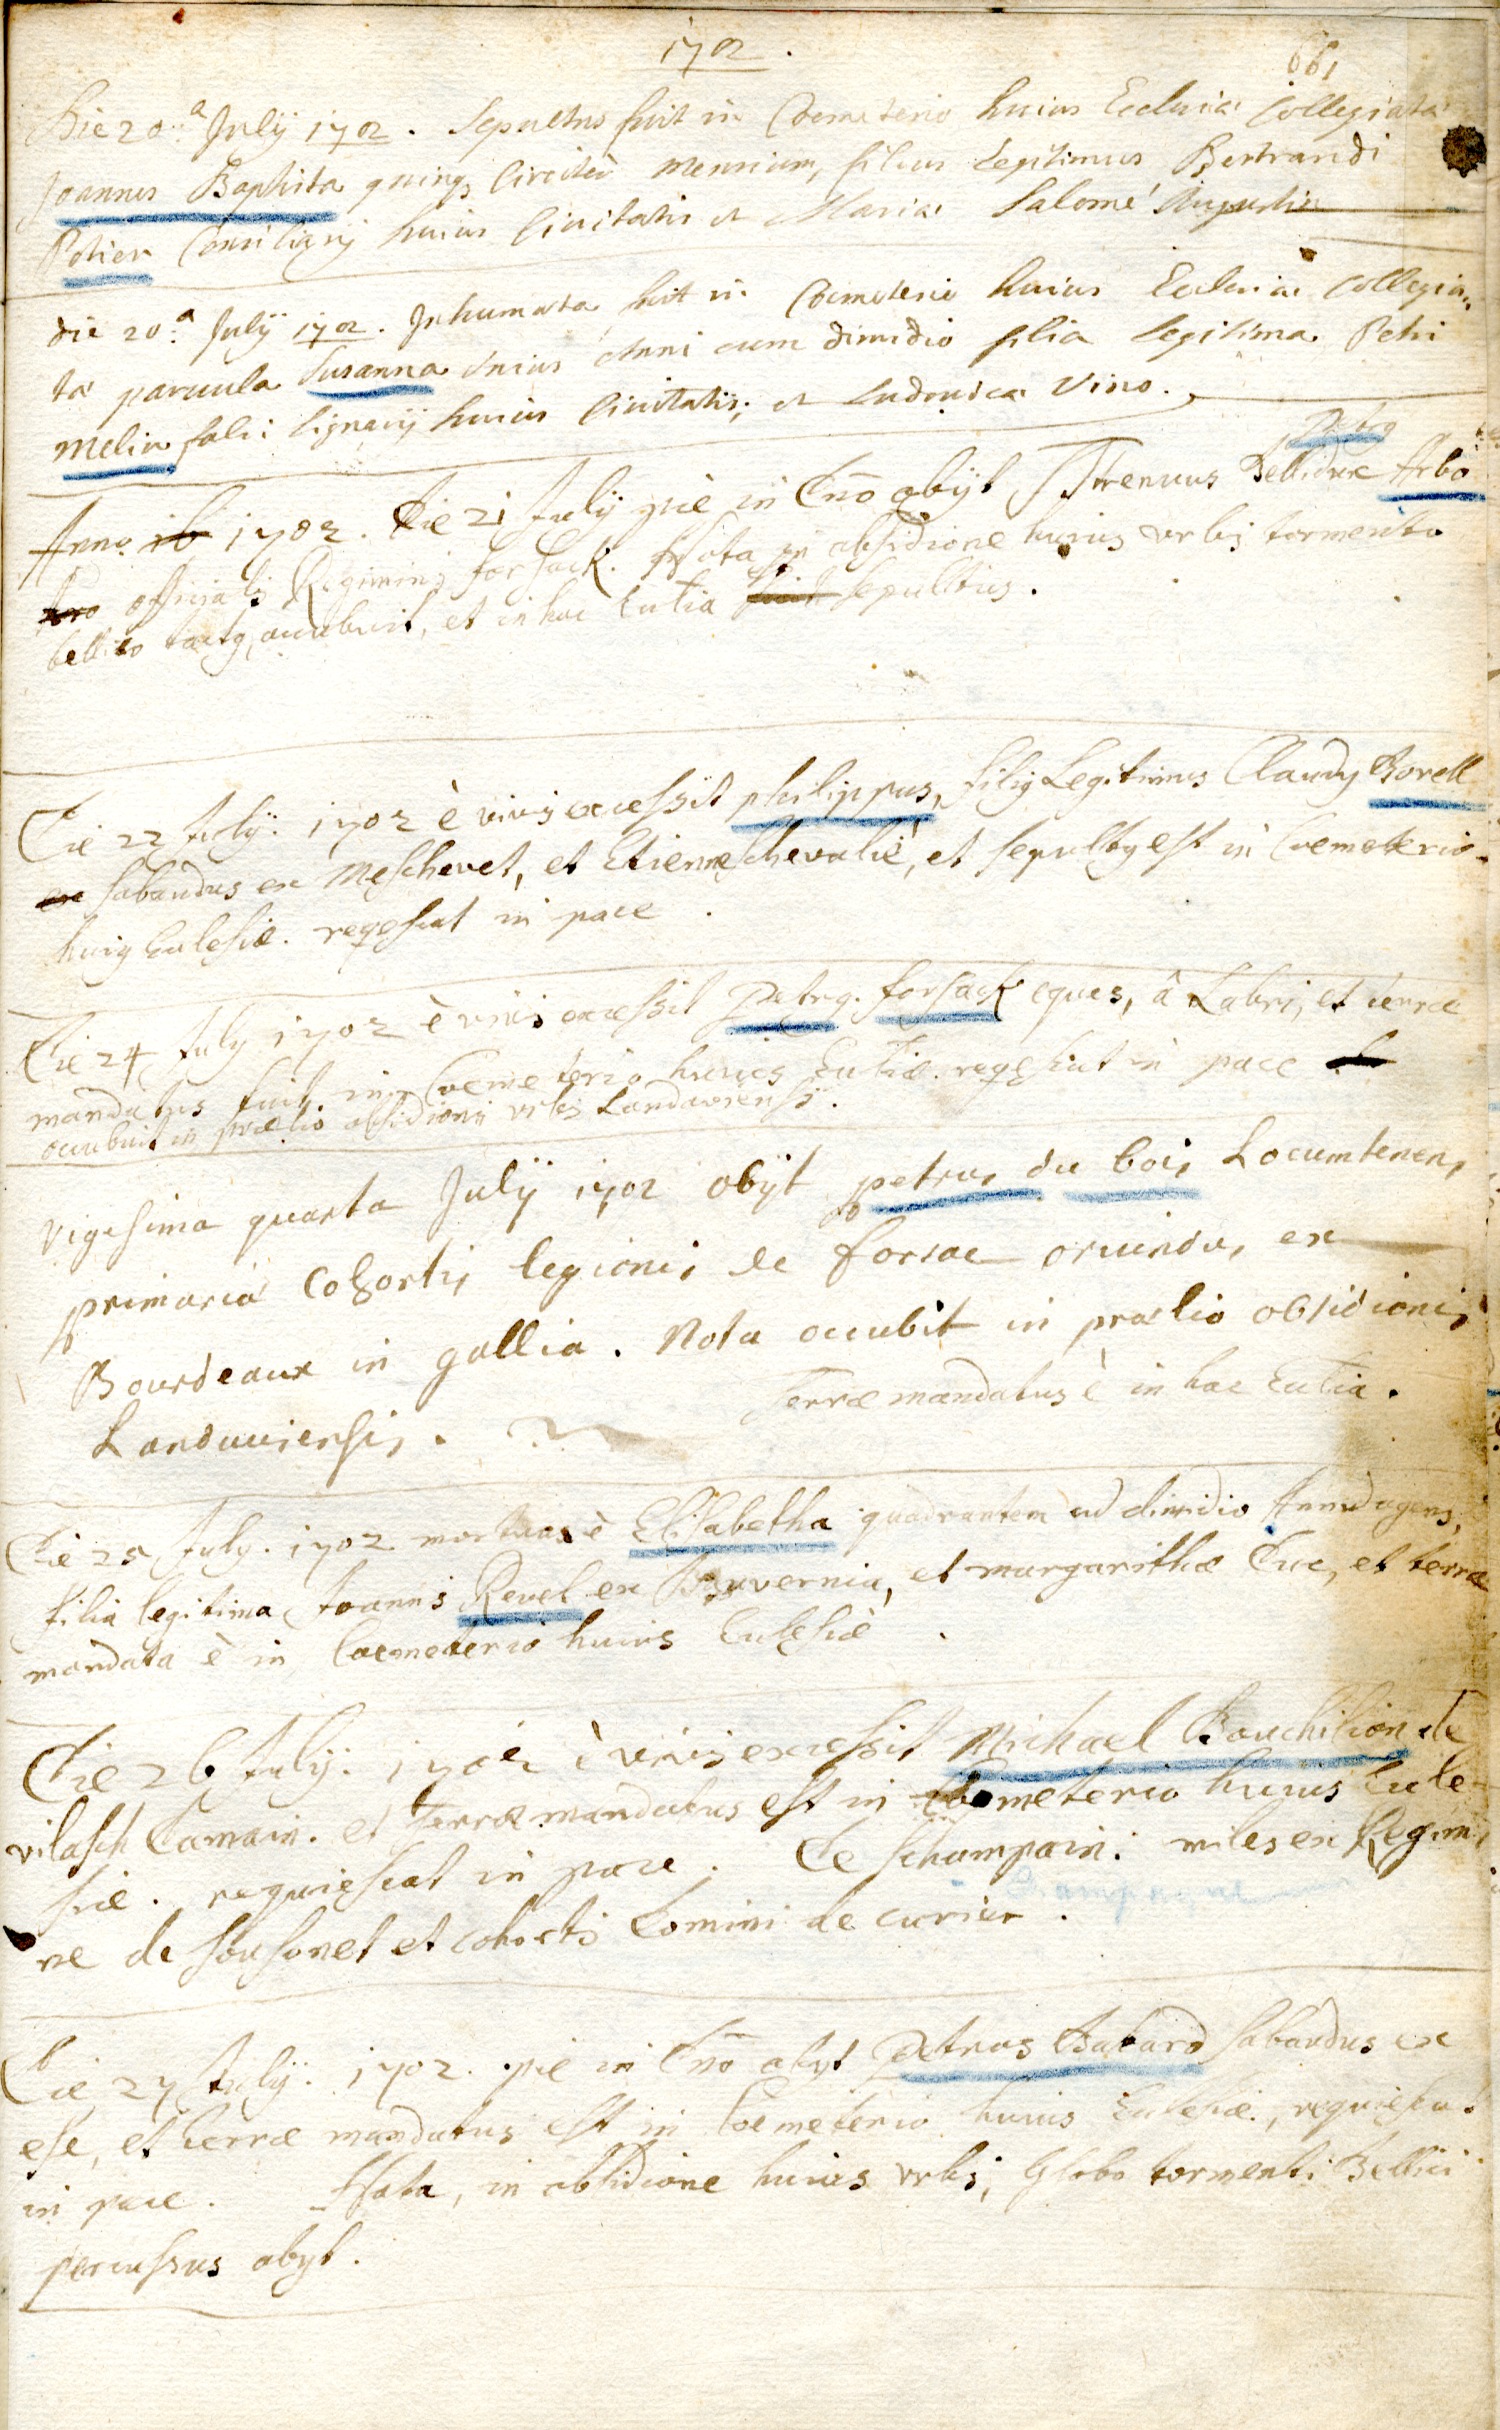 1702.
661
Die 20.a Julÿ 1702. Sepultus fuit in Coemeterio huius Ecclesiae Collegiatae
Joannes Baptista quinq, Circiter Mensium, filius Legitimus Bertrandi
Potier huius Civitatis et Mariae Salomé Augustin
die 20.a Julÿ 1702. Inhumata fuit in Coemeterio huius Ecclesiae Collegia,,
tae parvula Susanna Unius Anni cum dimidio filia Legitima Petri
Melin fabri lignarÿ huius Civitatis, et Ludovicae Vino.
Petrg
Anno 1702. Die 21 July pie in Dno obÿt Strenuus Bellidux Arbo
officialis Regiminis forsack. Nota in obsidione huius urbis tormento
bellico tactg, occubuit, et in hac Eccltia sepultus.
Die 22 Julÿ. 1702 è vivis excessit philippus, filig Legitimus Claudy Borell
Sabaudus ex Meschevet, et Etienne Chevalié, et sepultg est in Coemeterio
huig Ecclesiae. reqescat in pace.
Die 24 July 1702 è vivis excessit Petrg. forsack eques, â Labri, et terrae
mandatus fuit in Coemeterio huius Ecctiae. reqescat in pace
occubuit in praelio obsidionis urbis Landaviensis.
Vigesima quarta Julÿ 1702 obÿt petrus du bois Locumtenens
primariae Cohortis legionis de forsac oriundus ex
Bourdeaux in gallia. Nota occubit in praelio obsidionis
Landaviensis. Terrae mandatus è in hac Ecctia.
Die 25 July. 1702 mortua è Elisabetha quadrantem cum dimidio Anni agens,
filia legitima Joannis Revel ex Auvernia, et margarithae Duc, et terrae
mandata è in Coemeterio huius Ecclesiae.
Die 26 Julÿ. 1702 è vivis excessit Michael Bouchilion de
vilasch Damain. et Terrae mandatus est in Coemeterio huius Eccle-
siae. requiescat in pace. De schampain. miles ex Regimi
Champagne
ne de sousonet et cohortis Domini de curier.
Die 27 Julÿ. 1702. pie in Dno obyt Petrus Babard Sabaudus ex
ese, et terrae mandatus est in Coemeterio huius Ecclesiae, requiescat
in pace. Nota, in obsidione huius urbis, Globo tormenti Bellici
percussus obyt.